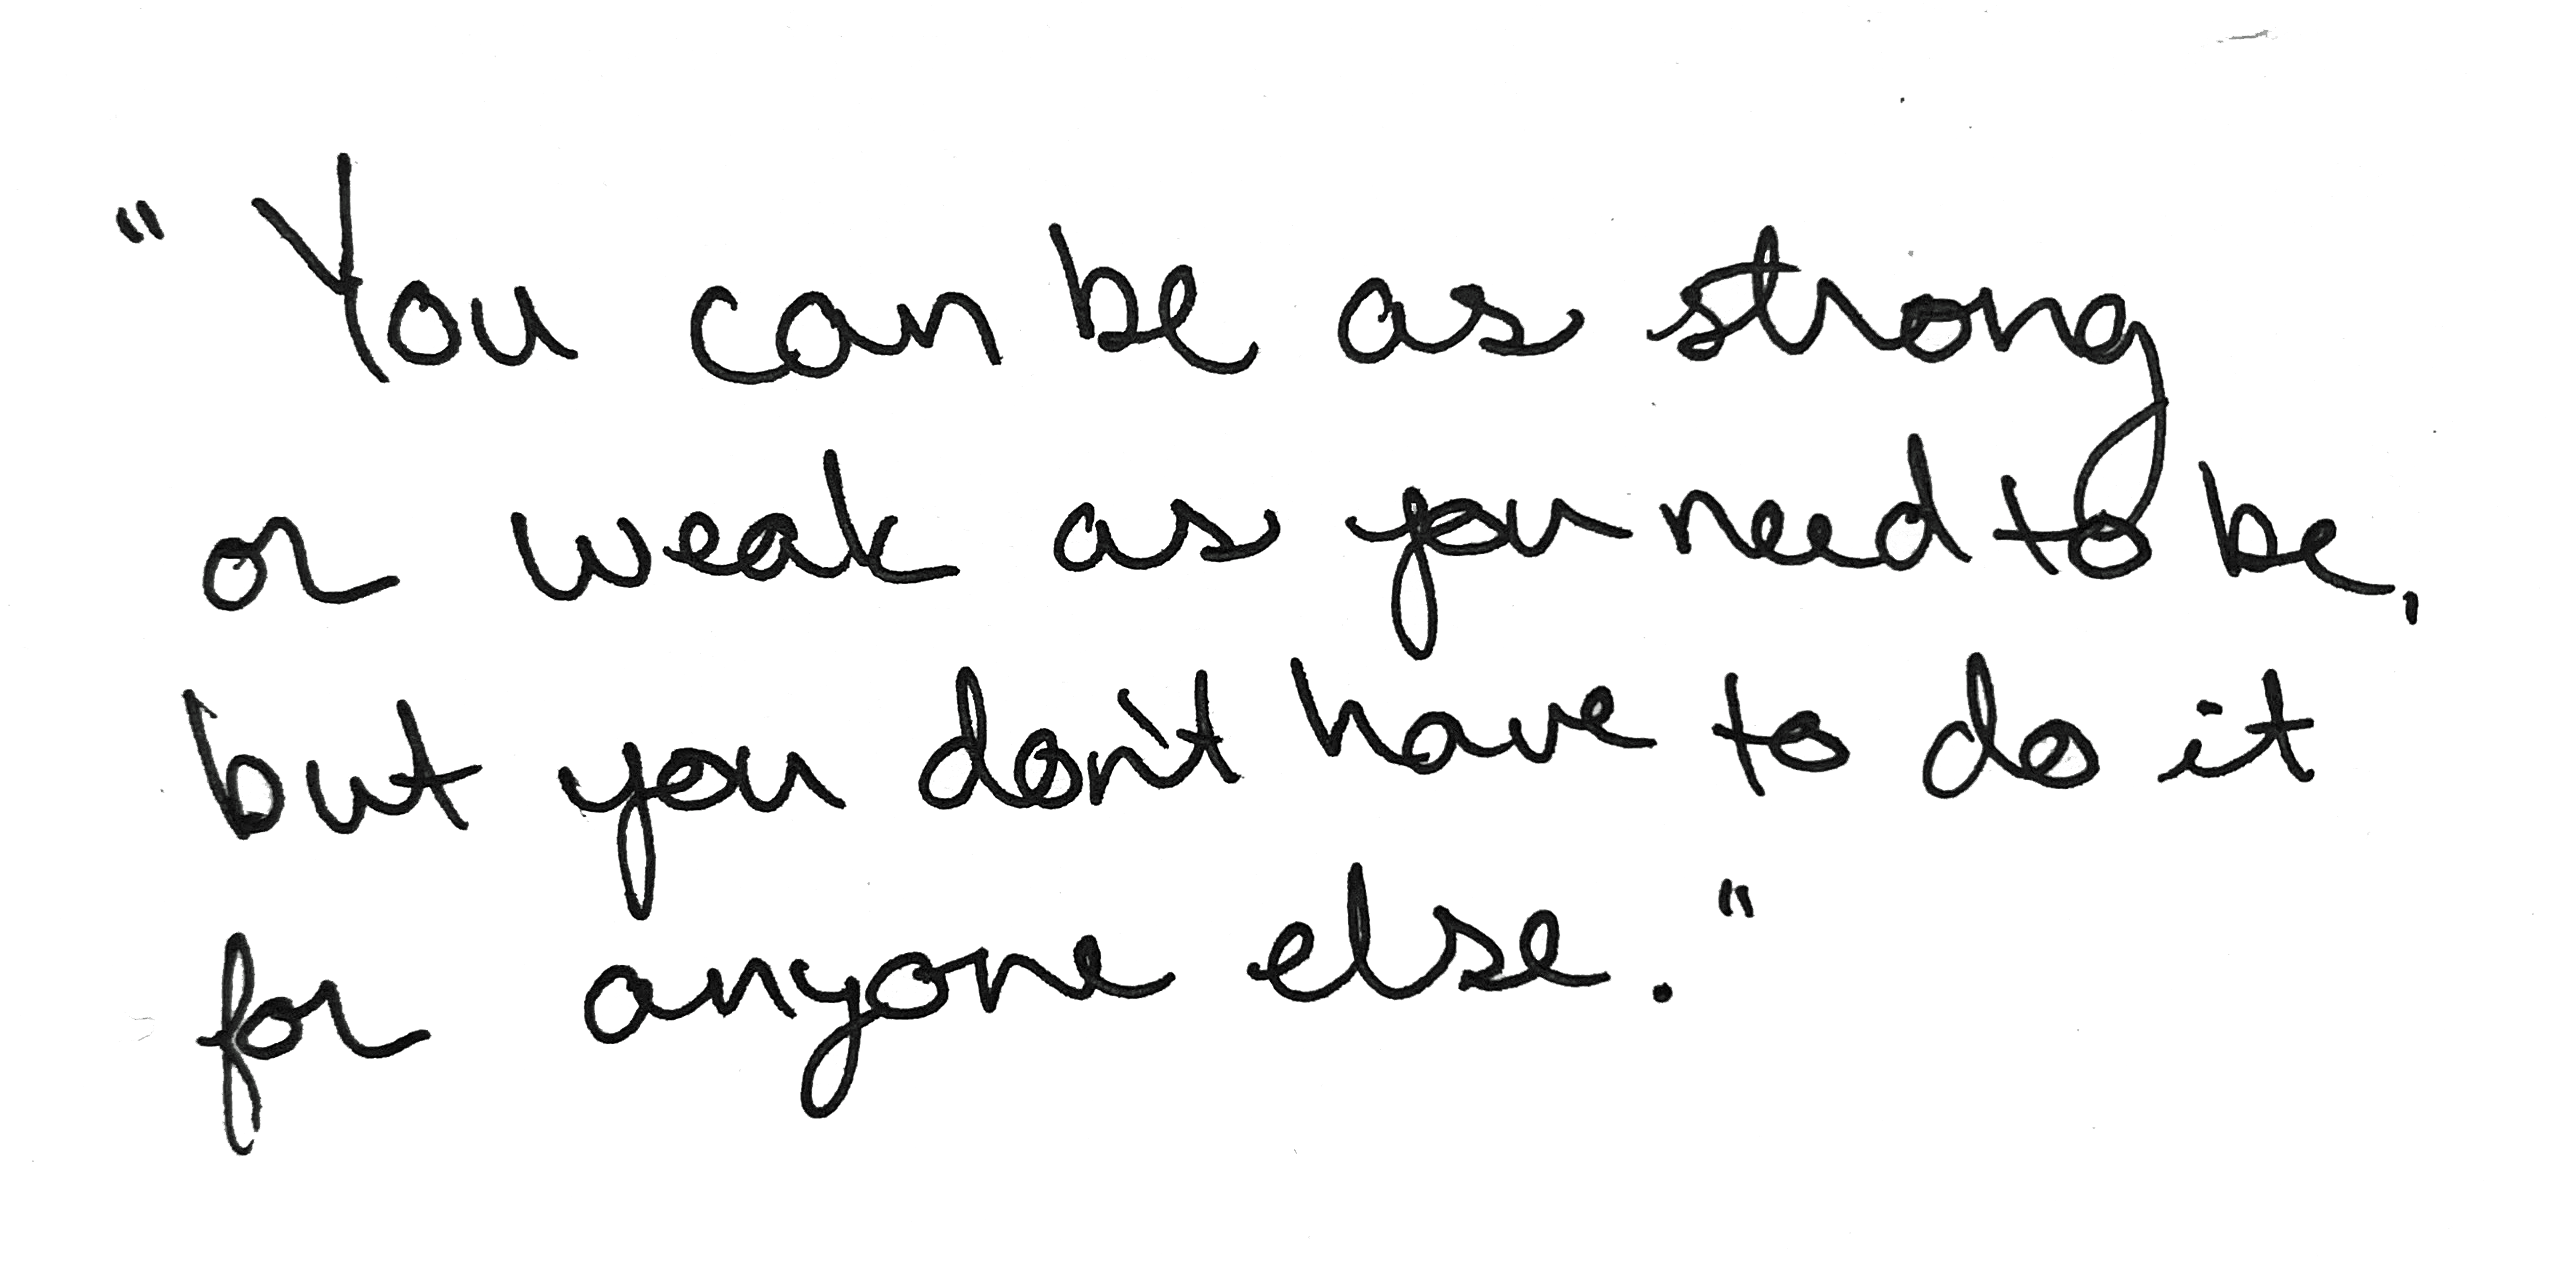 "You can be as strong
or weak as you need to be,
but you don't have to do it
for anyone else."